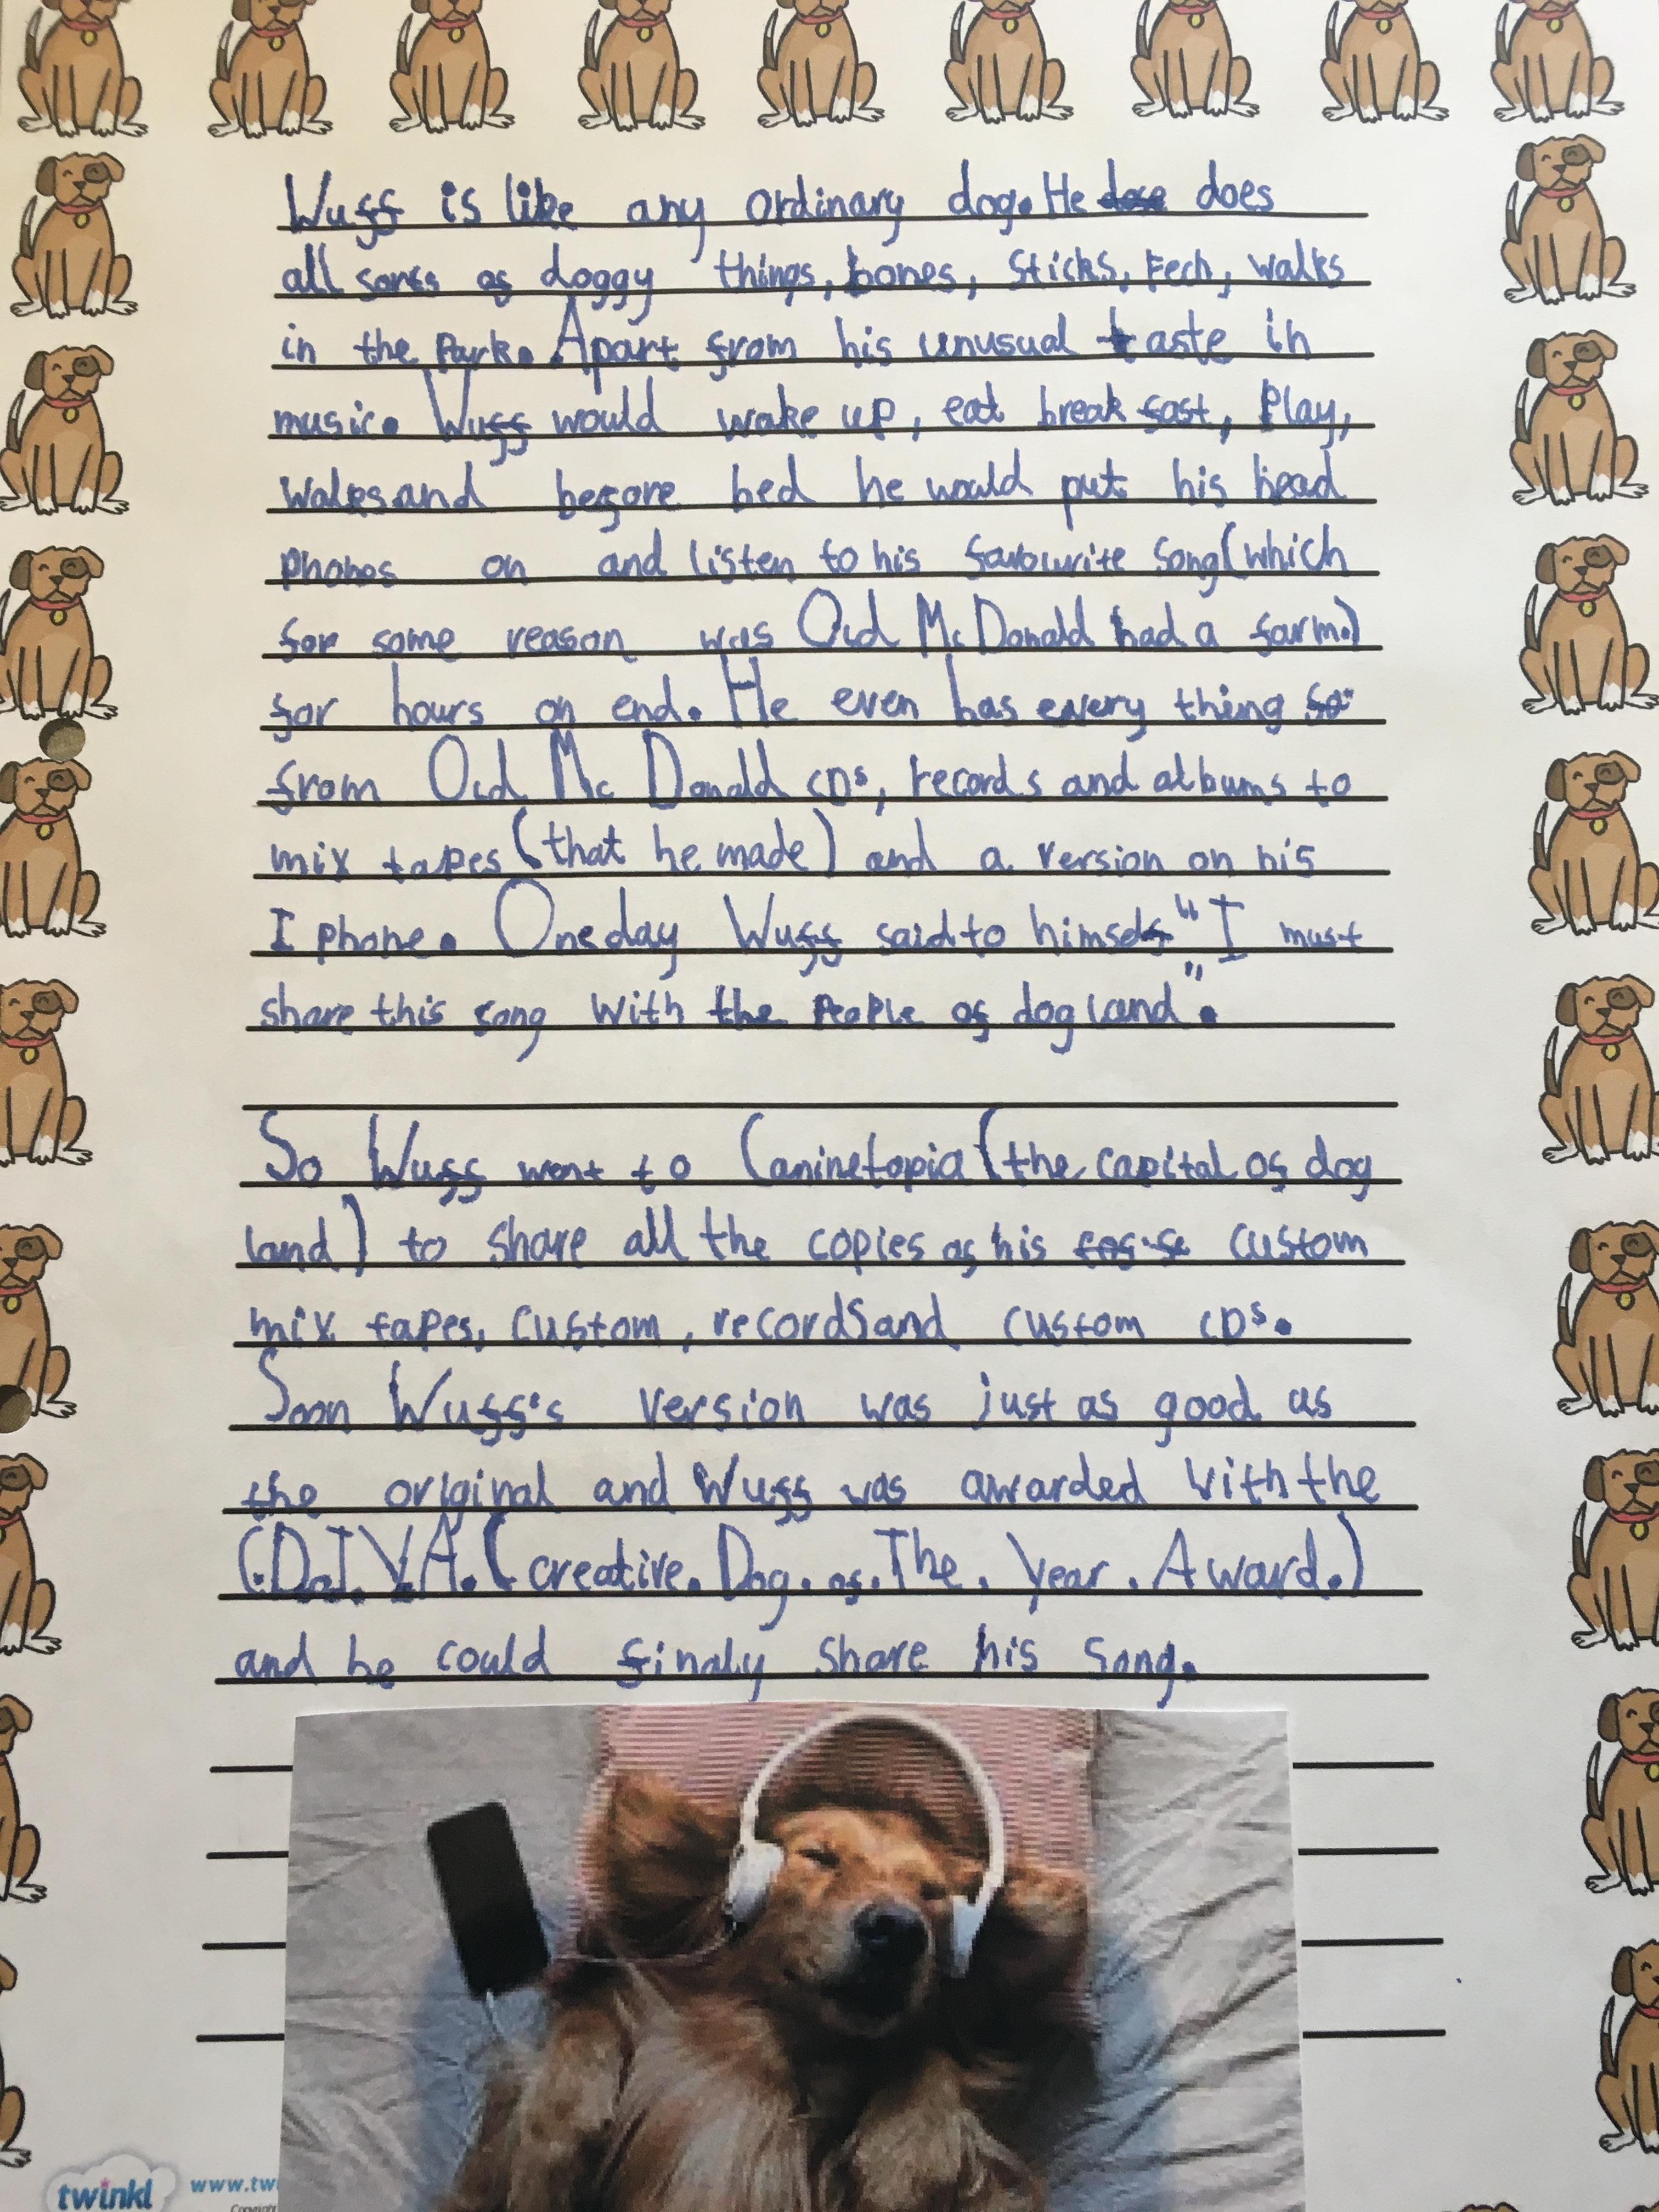 Wuff is like any ordinary dog. He dose does
all sorts of doggy things, bones, sticks, Fech, walks
in the Park. Apart from his unusual taste in
music. Wuff would wake up, eat break fast, Play,
walks and before bed he would put his head
phones on and listen to his favouwrite song (which
for some reason was Old McDonald had a farm.)
for hours on end. He even has every thing so
from Old Mc Donald CDs, records and albums to
mix tapes (that he made) and a version on his
I phone. One day Wuff said to himself "I must
share this song with the People of dog land".
So Wuff went to Caninetopia (the capital of dog
land) to share all the copies of his custom
mix tapes, custom, records and custom CDs.
Soon Wuff's version was just as good as
the original and Wuff was awarded with the
C.D.o.T.Y.A. (creative. Dog. of. The. Year. Award.)
and he could finaly share his song.
twinkl www.tw
Copyright